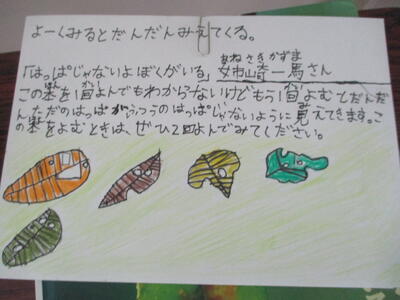 よーくみるとだんだんみえてくる。
あねさきかずま
「はっぱじゃないよぼくがいる」姉崎一馬さん
この本を1回よんでもわからないけどもう1回よむとだんだ
んただのはっぱがふつうのはっぱじゃないように見えてきます。こ
の本をよむときは、ぜひ2回よんでみてください。